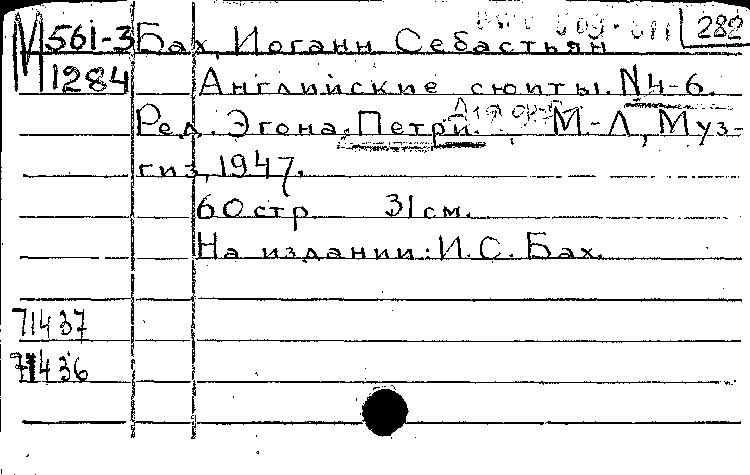 М 561-3 Бах, Иоганн Себастьян 282
1284 Английские сюиты. N4-6.
Ред. Эгона Петри. М-Л, Муз-
гиз, 1947.
60 стр 31 см.
На издании: И.С. Бах.
71437
71436